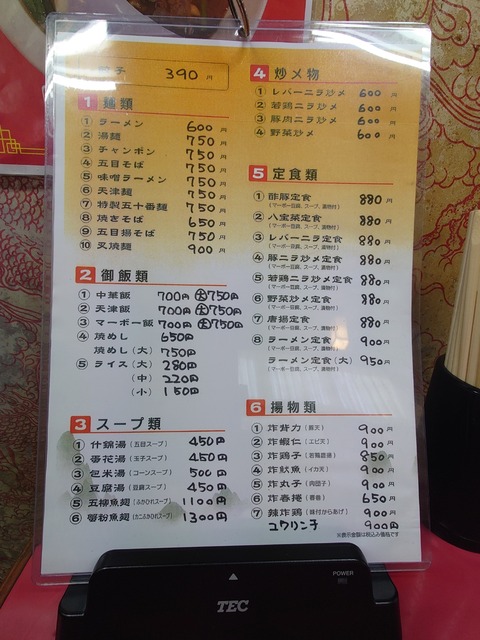 餃子 390円
1 麺類
① ラーメン 600円
② 湯麺 750円
③ チャンポン 750円
④ 五目そば 750円
⑤ 味噌ラーメン 750円
⑥ 天津麺 750円
⑦ 特製五十番麺 750円
⑧ 焼きそば 650円
⑨ 五目揚そば 750円
⑩ 叉焼麺 900円
2 御飯類
① 中華飯 700円 大750円
② 天津飯 700円 大750円
③ マーボー飯 700円 大750円
④ 焼めし 650円
焼めし(大) 750円
⑤ ライス(大) 280円
(中) 220円
(小) 150円
3 スープ類
① 什錦湯(五目スープ) 450円
② 蛋花湯(玉子スープ) 450円
③ 包米湯(コーンスープ) 500円
④ 豆腐湯(豆腐スープ) 450円
⑤ 五柳魚翅(ふかひれスープ) 1100円
⑥ 蟹粉魚翅(カニふかひれスープ) 1300円
4 炒メ物
① レバーニラ炒メ 600円
② 若鶏ニラ炒メ 600円
③ 豚肉ニラ炒メ 600円
④ 野菜炒メ 600円
5 定食類
① 酢豚定食 880円
(マーボー豆腐、スープ、漬物付)
② 八宝菜定食 880円
(マーボー豆腐、スープ、漬物付)
③ レバーニラ定食 880円
(マーボー豆腐、スープ、漬物付)
④ 豚ニラ炒メ定食 880円
(マーボー豆腐、スープ、漬物付)
⑤ 若鶏ニラ炒メ定食 880円
(マーボー豆腐、スープ、漬物付)
⑥ 野菜炒メ定食 880円
(マーボー豆腐、スープ、漬物付)
⑦ 唐揚定食 880円
(マーボー豆腐、スープ、漬物付)
⑧ ラーメン定食 900円
(マーボー豆腐、スープ、漬物付)
ラーメン定食(大) 950円
(マーボー豆腐、スープ、漬物付)
6 揚物類
① 炸背力(豚天) 900円
② 炸蝦仁(エビ天) 900円
③ 炸鶏子(若鶏唐揚) 850円
④ 炸魷魚(イカ天) 900円
⑤ 炸丸子(肉団子) 900円
⑥ 炸春捲(春巻) 650円
⑦ 辣炸鶏(味付からあげ) 900円
ユウリンチ 900円
※表示金額は税込み価格です
POWER
TEC